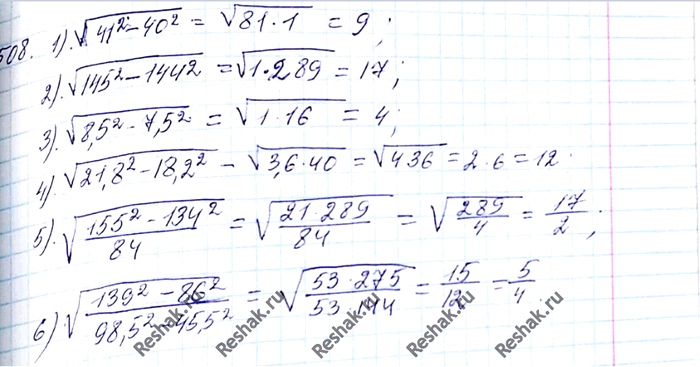 508. 1). √41²-40² = √81·1 = 9;
2). √145²-144² = √1·289 = 17;
3). √8,5²-7,5² = √1·16 = 4;
4). √21,8²-18,2² - √3,6·40 = √436 = 2·6 = 12.
5). √(155²-134²)/84 = √(21·289)/84 = √289/4 = 17/2;
6) √(139²-86²)/(98,5²-45,5²) = √(53·275)/(53·144) = 15/12 = 5/4
Reshak.ru Reshak.ru Reshak.ru Reshak.ru Reshak.ru Reshak.ru